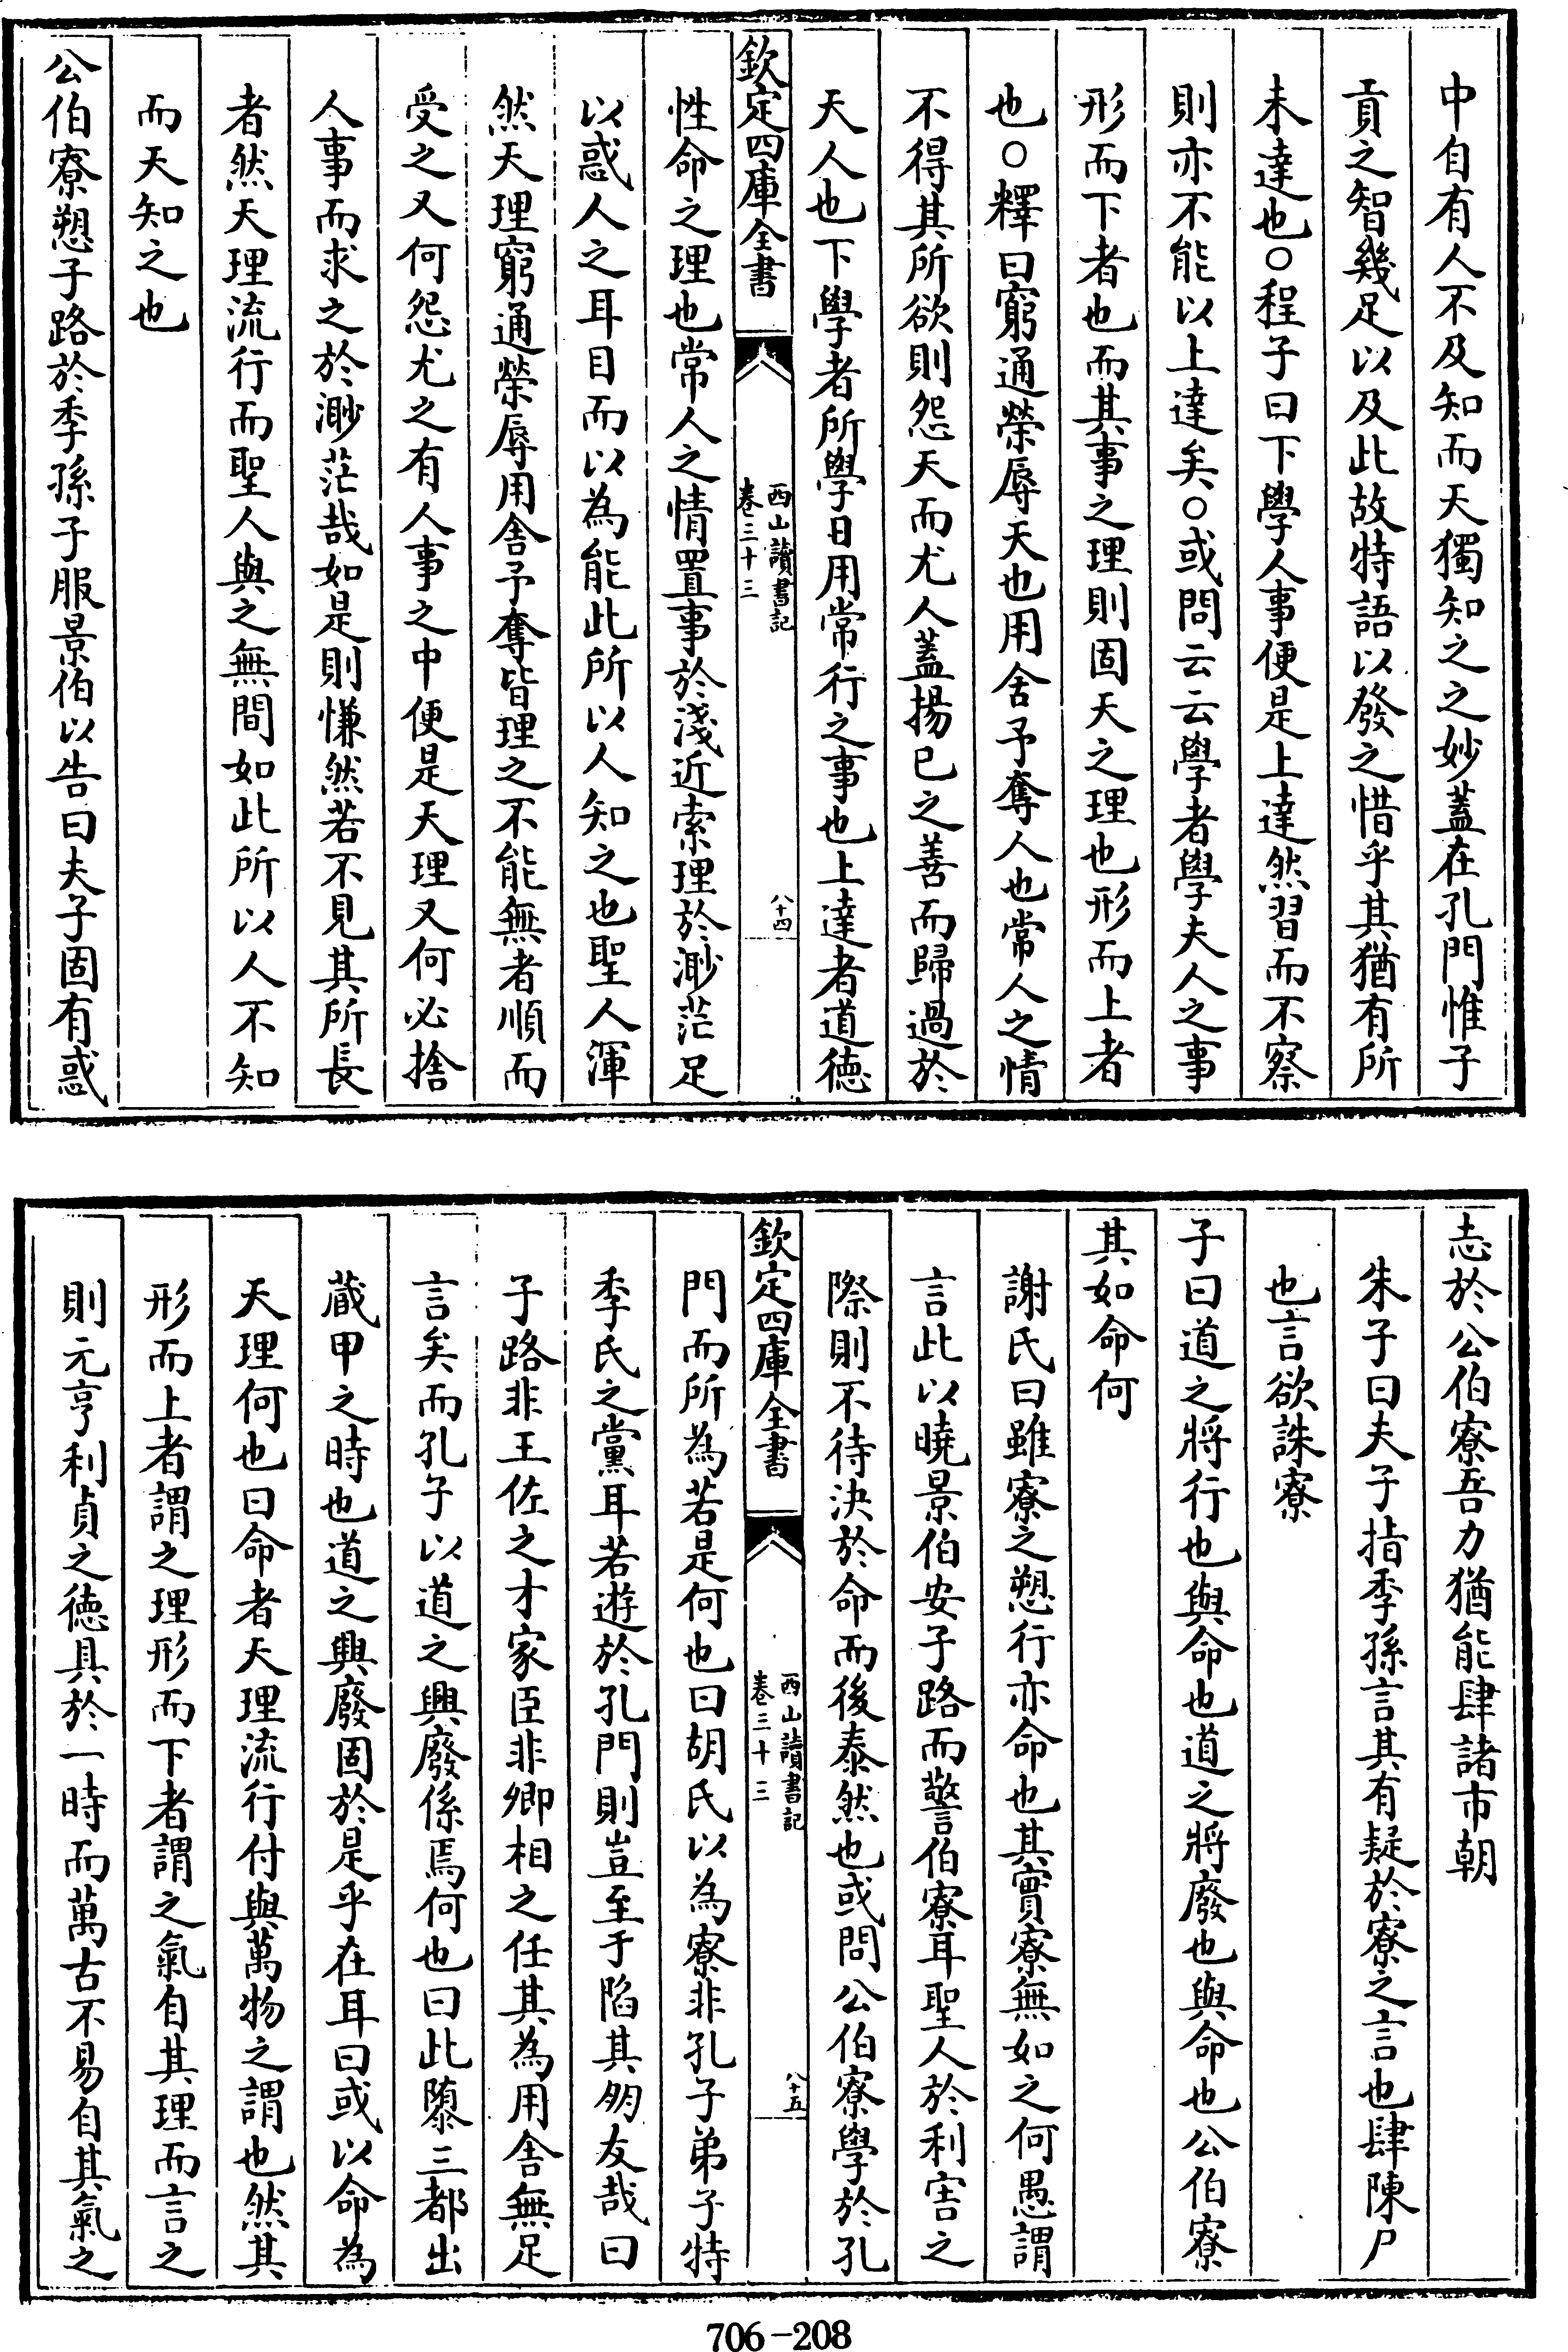 中自有人不及知而天獨知之之妙蓋在孔門惟子
貢之智幾足以及此故特語以發之惜乎其猶有所
未達也○程子曰下學人事便是上達然習而不察
則亦不能以上達矣○或問云云學者學夫人之事
形而下者也而其事之理則固天之理也形而上者
也○釋曰窮通榮辱天也用舍予奪人也常人之情
不得其所欲則怨天而尤人蓋揚已之善而歸過於
天人也下學者所學日用常行之事也上達者道徳
欽定四庫全書
西山讀書記
卷三十三
八十四
性命之理也常人之情置事於淺近索理於渺茫足
以惑人之耳目而以為能此所以人知之也聖人渾
然天理窮通榮辱用舍予奪皆理之不能無者順而
受之又何怨尤之有人事之中便是天理又何必捨
人事而求之於渺茫哉如是則慊然若不見其所長
者然天理流行而聖人與之無間如此所以人不知
而天知之也
公伯寮愬子路於季孫子服景伯以告曰夫子固有惑
志於公伯寮吾力猶能肆諸市朝
朱子曰夫子指季孫言其有疑於寮之言也肆陳尸
也言欲誅寮
子曰道之將行也與命也道之將廢也與命也公伯寮
其如命何
謝氏曰雖寮之愬行亦命也其實寮無如之何愚謂
言此以曉景伯安子路而警伯寮耳聖人於利害之
際則不待決於命而後泰然也或問公伯寮學於孔
欽定四庫全書
西山讀書記
卷三十三
八十五
門而所為若是何也曰胡氏以為寮非孔子弟子特
季氏之黨耳若遊於孔門則豈至于陷其朋友哉曰
子路非王佐之才家臣非卿相之任其為用舍無足
言矣而孔子以道之興廢係焉何也曰此隳三都出
蔵甲之時也道之興廢固於是乎在耳曰或以命為
天理何也曰命者天理流行付與萬物之謂也然其
形而上者謂之理形而下者謂之氣自其理而言之
則元亨利貞之徳具於一時而萬古不易自其氣之
706-208